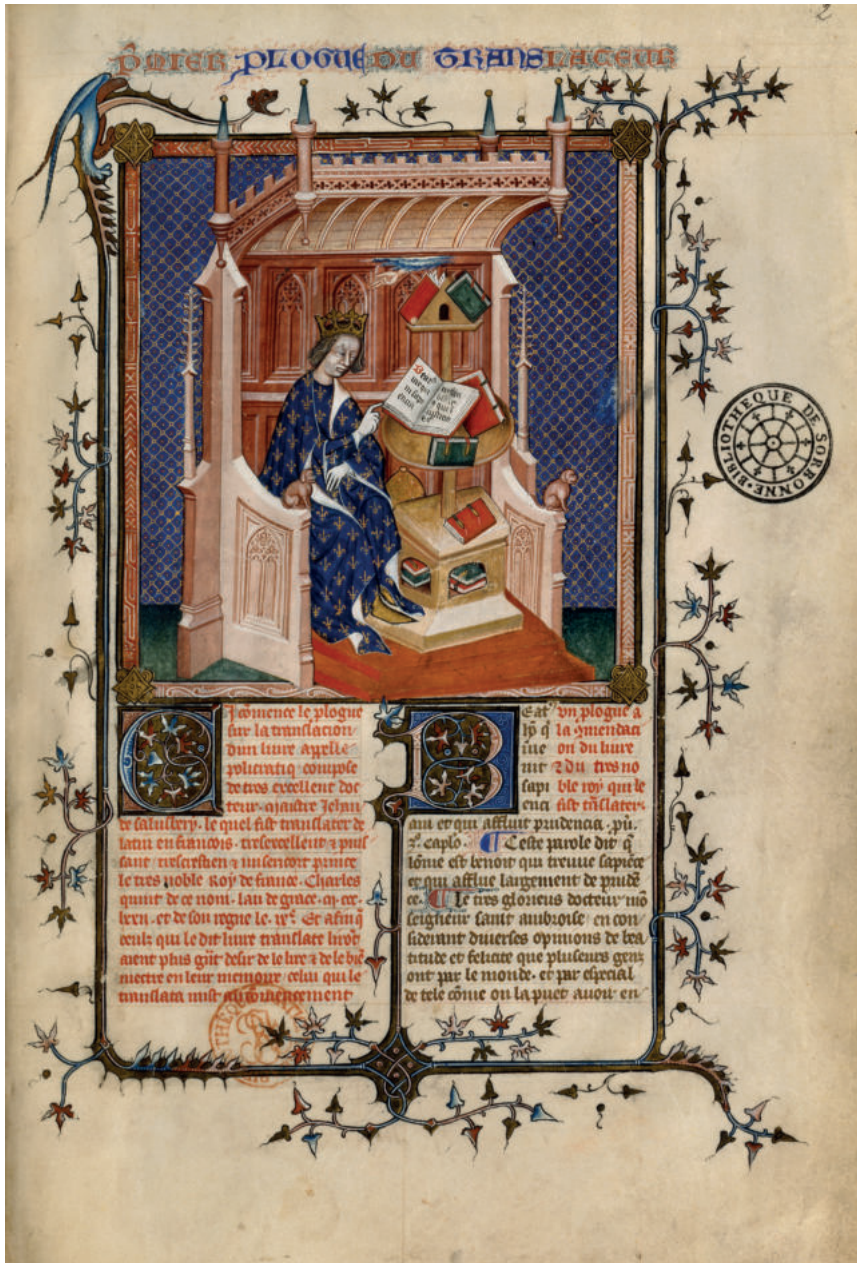 2
P̄MIER PLOGUE DU TRANSLATEUR
Beat᷒
BIBLIOTHEQUE DE SORBONNE
Cy comence le plogue
sur la translacion
dun livre appelle
policratiq compose
de tres excellent doc
teur. maistre Jehan
de salusbery. le quel fist translater de
latin en francois. tresexcellent & puis
sant trescrestien & nusericort prince
le tres noble Roy de france. Charles
quint de ce nom. lan de grace. m. ccc.
lxxii. et de son regne le. ixᵉ. Et afin q̄
ceulz qui le dit livre translate liront
aient plus g̃nt desir de le lire & de le biē
mectre en leur memoire celui qui le
translata mist au comencement
un plogue a
la 9mendaci
on du livre
& du tres no
ble roy qui le
fist tn̄slater.
Beat᷒
hō q̄
iue
nit
sapi
enci
am et qui affluit prudencia. pū.
2ᵒ. caplo. Ceste parole dit q̄
lōme est benoit qui treuve sapiēce
et qui afflue largement de prudē
ce. Le tres glorieus docteur mō
seigneur saint ambroise en con
siderant diverses opinions de bea
titude et felicite que plusieurs genz
ont par le monde. et par especial
de tele cōme on la puet avoir en